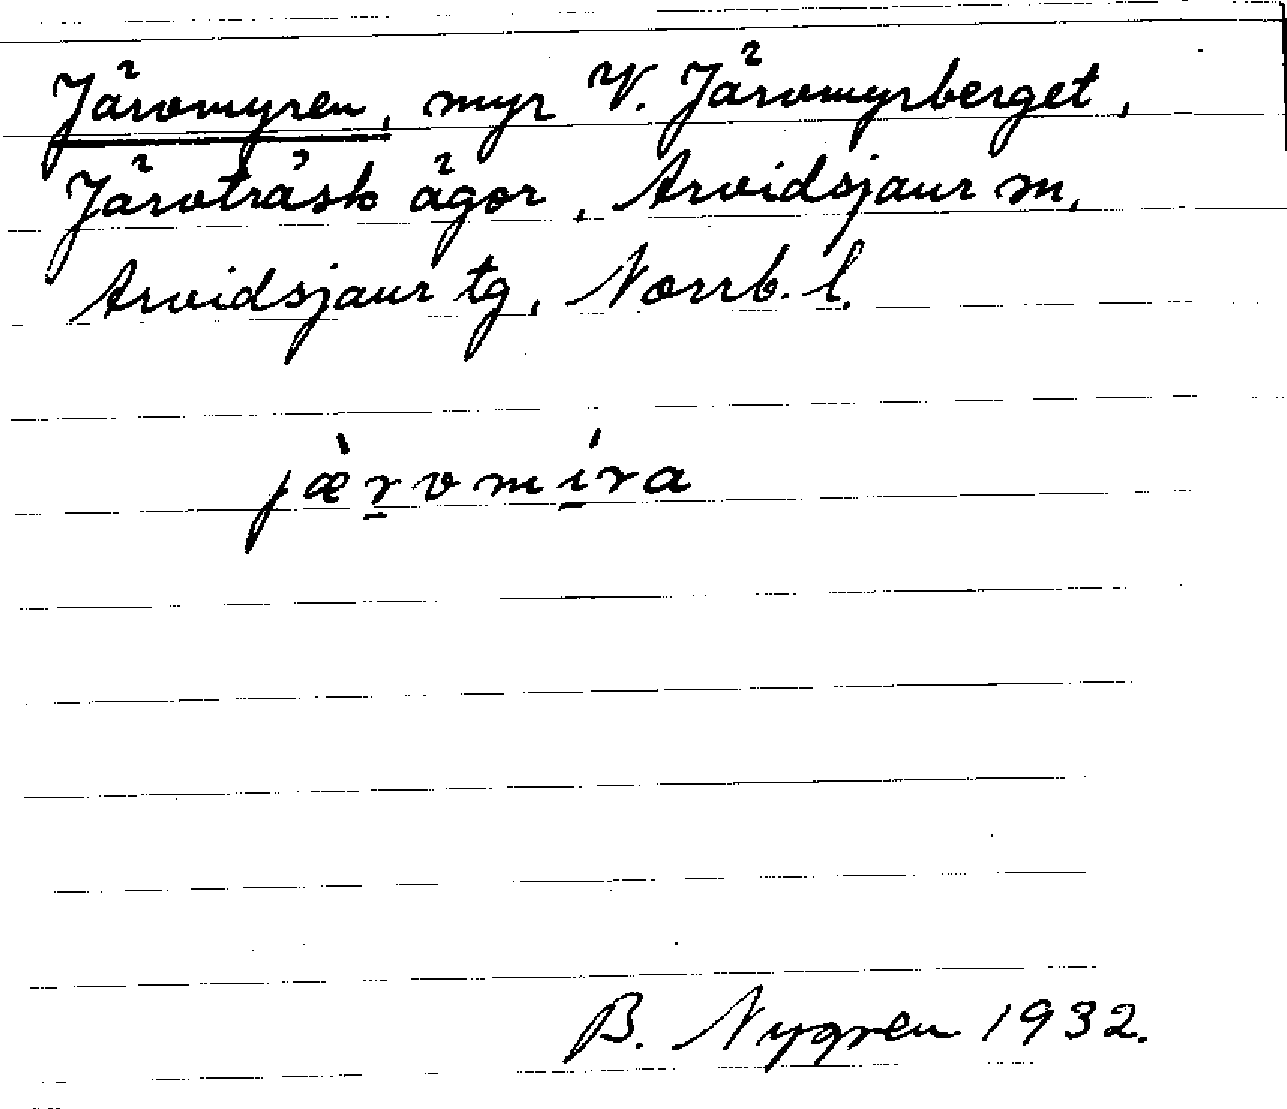 Järvmyren, myr V. Järvmyrberget,
Järvträsk ägor, Arvidsjaur sn,
Arvidsjaur tg, Norrb. l.
jæ̀r̠vmí̠ra
B. Nygren 1932.